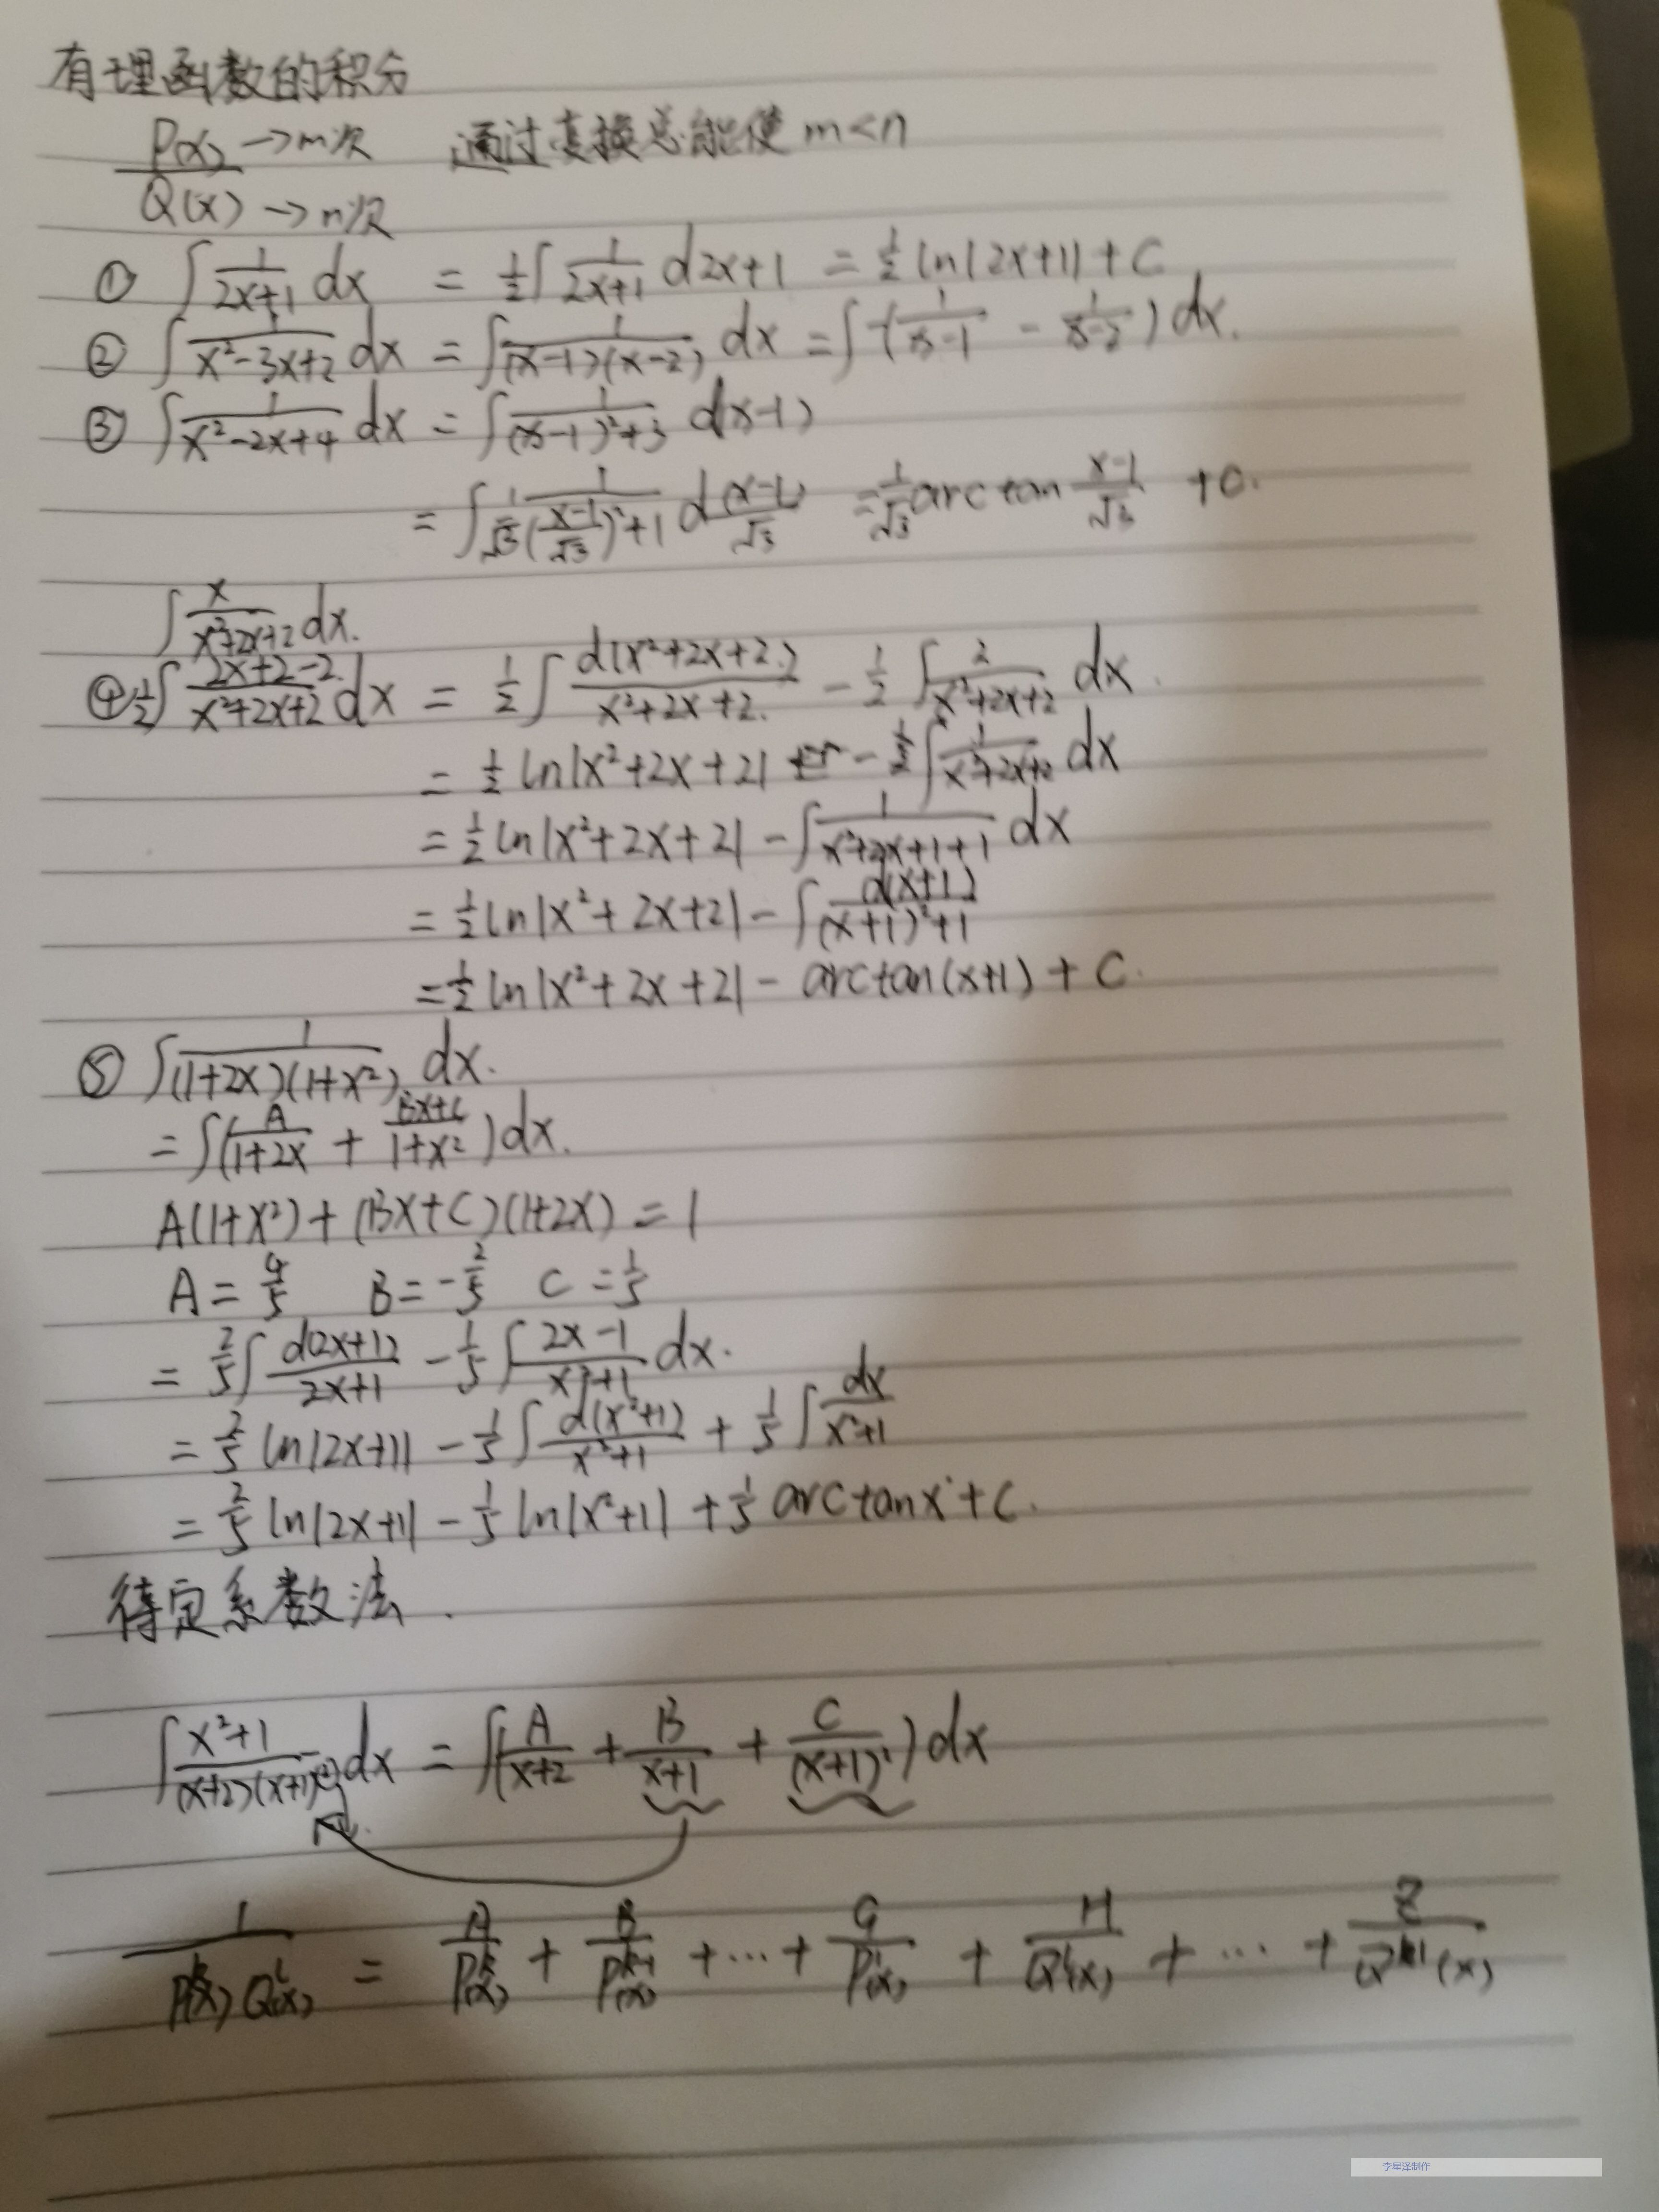 有理函数的积分
P(x) →m次 通过变换总能使 m<n
Q(x) →n次
① ∫ 1/(2x+1) dx = 1/2 ∫ 1/(2x+1) d2x+1 = 1/2 ln|2x+1| + C
② ∫ 1/(x²-3x+2) dx = ∫ 1/((x-1)(x-2)) dx = ∫ -(1/(x-1) - 1/(x-2)) dx.
③ ∫ 1/(x²-2x+4) dx = ∫ 1/((x-1)²+3) d(x-1)
= ∫ 1/√3 1/(((x-1)/√3)²+1) d(x-1)/√3 = 1/√3 arctan (x-1)/√3 + C.
∫ x/(x²+2x+2) dx.
④ 1/2 ∫ (2x+2-2)/(x²+2x+2) dx = 1/2 ∫ d(x²+2x+2)/(x²+2x+2) - 1/2 ∫ 2/(x²+2x+2) dx.
= 1/2 ln|x²+2x+2| - ∫ 1/(x²+2x+2) dx
= 1/2 ln|x²+2x+2| - ∫ 1/(x²+2x+1+1) dx
= 1/2 ln|x²+2x+2| - ∫ d(x+1)/((x+1)²+1)
= 1/2 ln|x²+2x+2| - arctan(x+1) + C.
⑤ ∫ 1/((1+2x)(1+x²)) dx.
= ∫ (A/(1+2x) + (Bx+C)/(1+x²)) dx.
A(1+x²) + (Bx+C)(1+2x) = 1
A = 4/5 B = -2/5 C = 1/5
= 2/5 ∫ d(2x+1)/(2x+1) - 1/5 ∫ (2x-1)/(x²+1) dx.
= 2/5 ln|2x+1| - 1/5 ∫ d(x²+1)/(x²+1) + 1/5 ∫ dx/(x²+1)
= 2/5 ln|2x+1| - 1/5 ln|x²+1| + 1/5 arctanx + C.
待定系数法.
∫ (x²+1)/((x+2)(x+1)²) dx = ∫ (A/(x+2) + B/(x+1) + C/(x+1)²) dx
1/(Pᵏ(x) Qˡ(x)) = A/Pᵏ(x) + B/Pᵏ⁻¹(x) + ... + G/P(x) + H/Qˡ(x) + ... + Z/Q(x)
李星泽制作